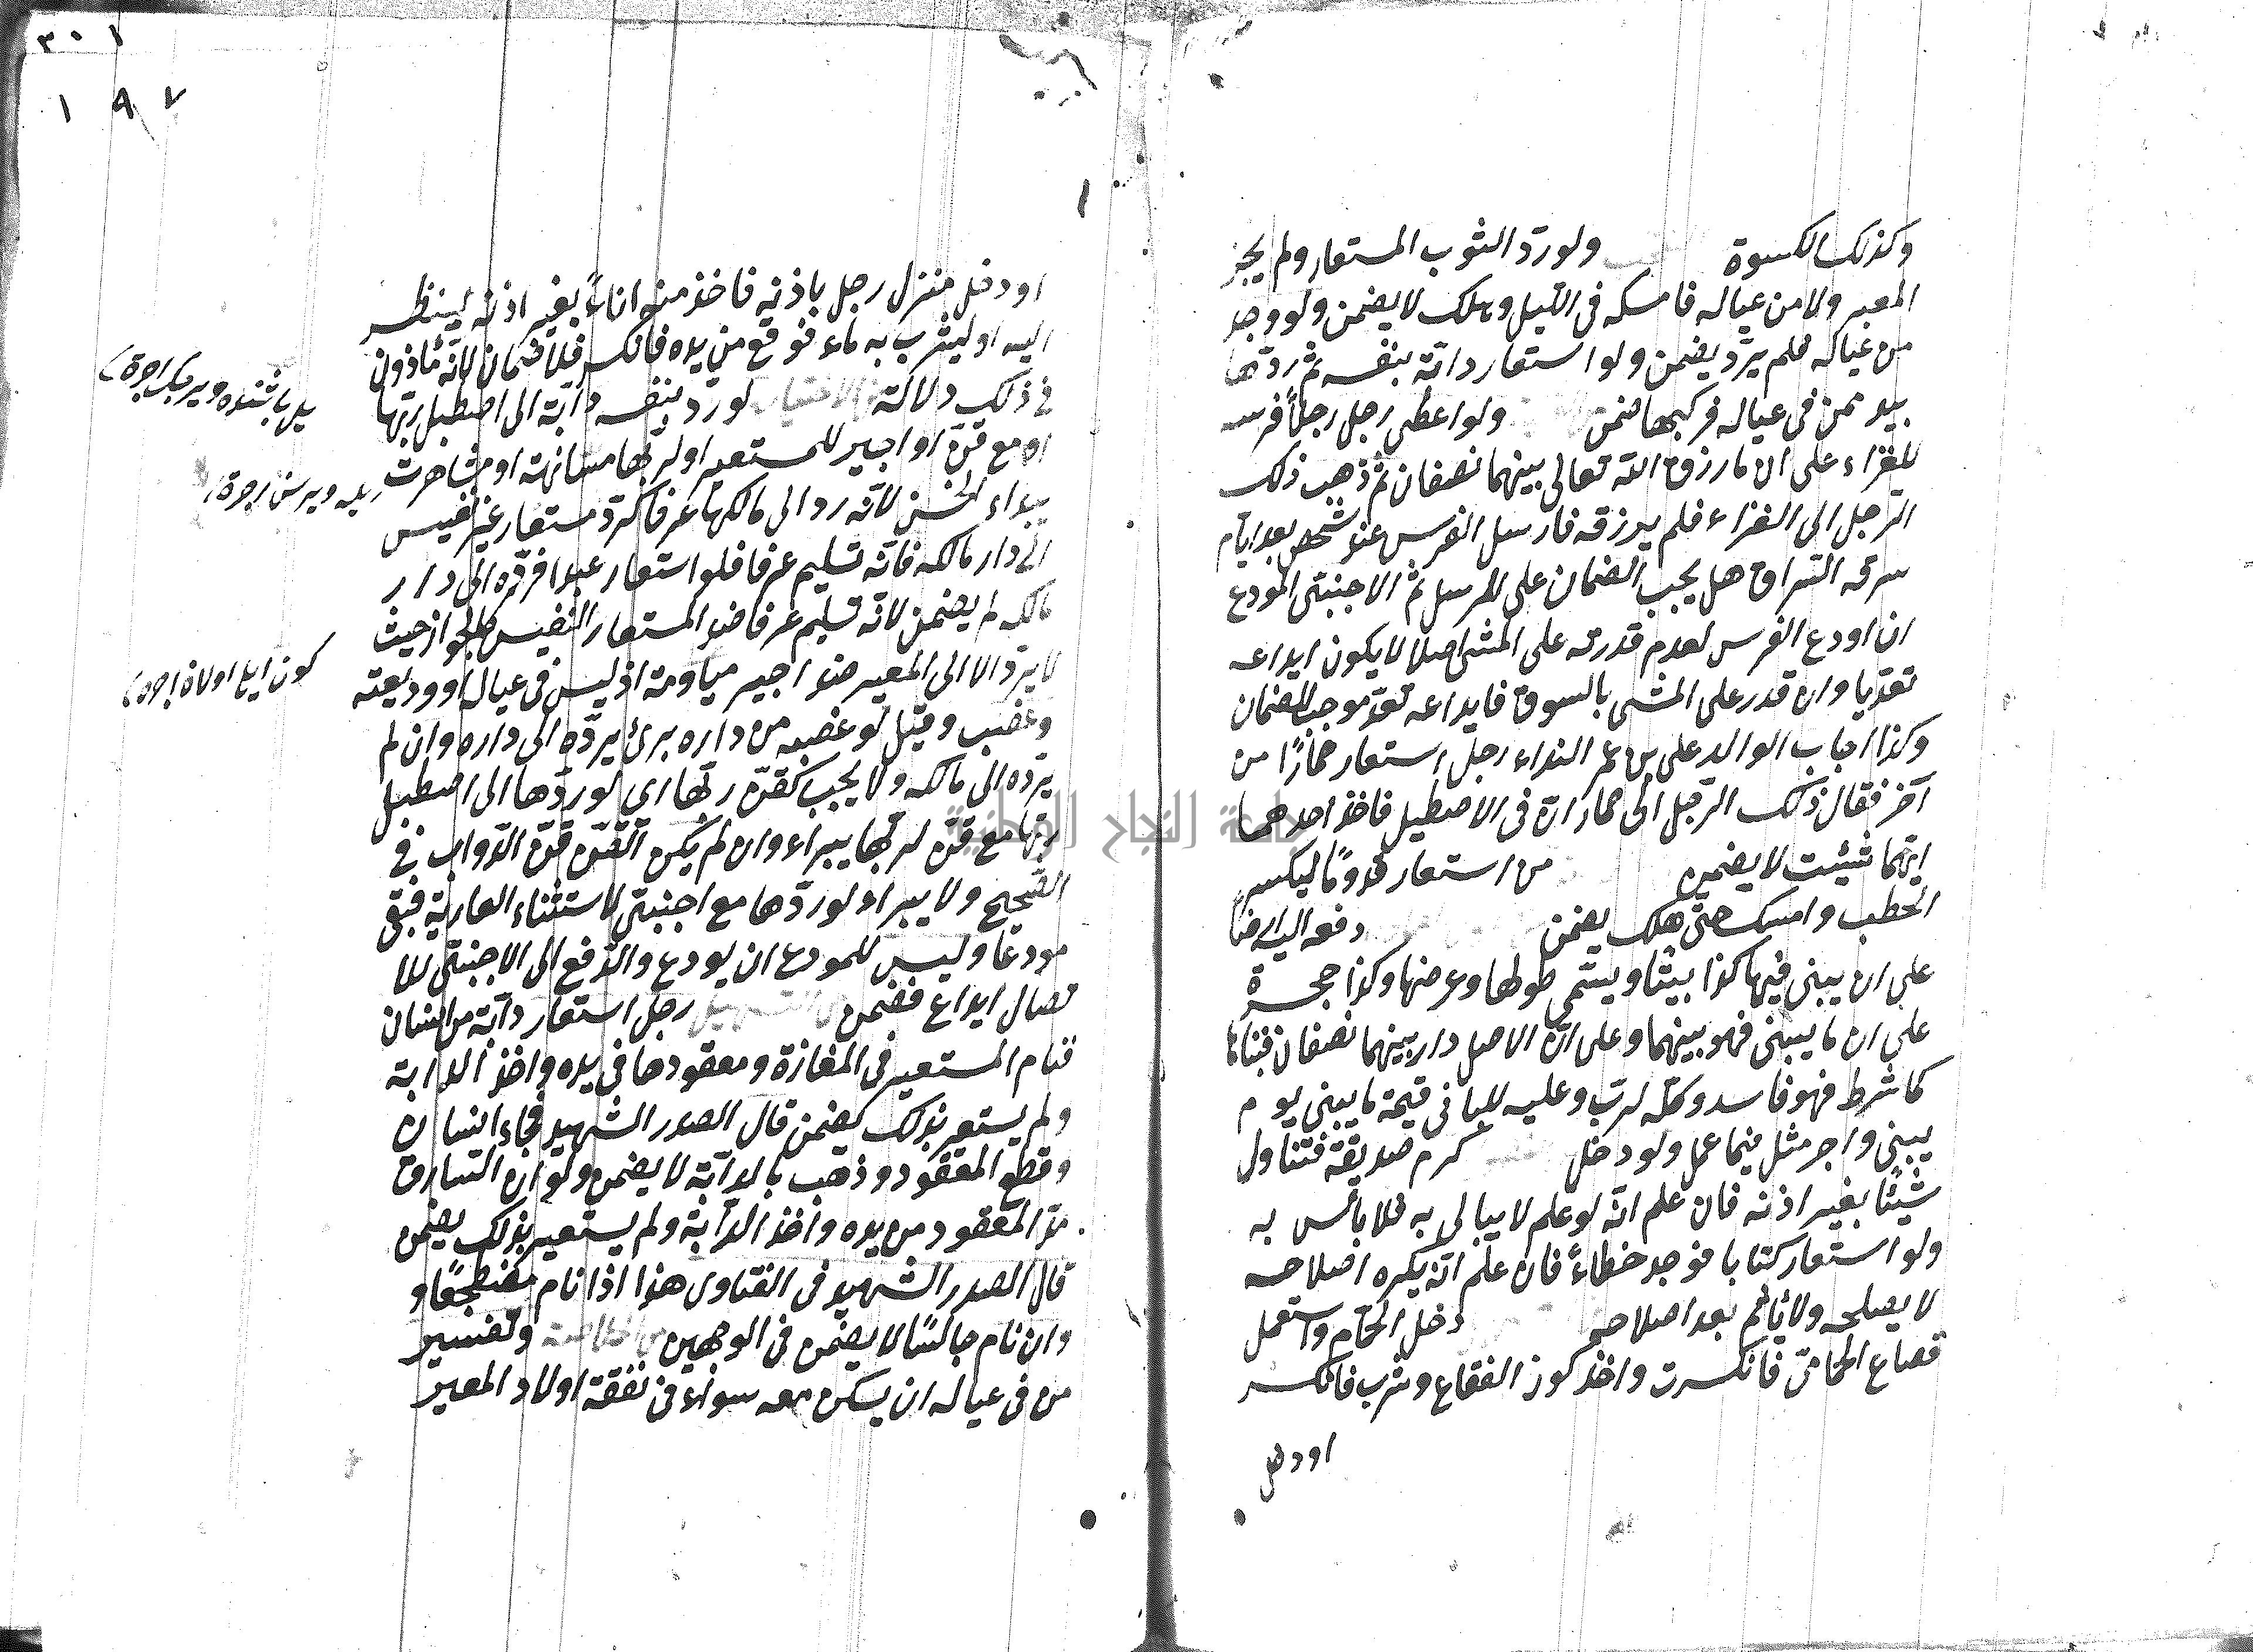 وكذلك الكسوة ولو ردّ الثوب المستعار ولم يجد
المعير ولا من عياله فامسكه فى الليل وهلك لا يضمن ولو وجد
من عياله فلم يردّ يضمن ولو استعار دابّة بنفسه ثم ردّها
بيد من فى عياله فركبها ضمن ولو اعطى رجل رجلاً فرسه
للغزاء على ان ما رزق الله تعالى بينهما نصفان ثم ذهب ذلك
الرجل الى الغزاء فلم يرزقه فارسل الفرس عند شخص بعد ايام
سرقه السراق هل يجب الضمان على المرسل ثم الاجنبى المودع
ان اودع الفرس لعدم قدرته على المشى اصلا لا يكون ايداعه
تعدّيا وان قدر على المشى بالسوق فايداعه تعدّ موجب للضمان
وكذا اجاب الوالد على النداء رجل استعار حمارًا من
آخر فقال ذلك الرجل الى حماران فى الاصطبل فاخذ احدهما
ايهما شئت لا يضمن من استعار قدومًا ليكسر
الحطب وامسك حتى هلك يضمن دفعه اليه ارضًا
على ان يبنى فيها كذا بيتا ويسمى طولها وعرضها وكذا حجرة
على ان ما يبنى فهو بينهما وعلى انّ الاصل دار بينهما نصفان فبناها
كما شرط فهو فاسد وكلّه لربّ وعليه للبانى قيمة ما يبنى يوم
يبنى واجر مثل فيما عمل ولو دخل كرم صديقه فتناول
شيئًا بغير اذنه فان علم انّه لو علم لا يبالى به فلا بأس به
ولو استعار كتابا فوجد خطاءً فان علم انّه يكره اصلاحه
لا يصلحه ولا يأثم بعد اصلاحه دخل الحمّام واستعمل
قصاع الحمّامىّ فانكسرت واخذ كوز الفقاع وشرب فانكسر
او دخل
٣٠١
١٩٧
او دخل منزل رجل باذنه فاخذ منه اناءً بغير اذنه لينظر
اليه او ليشرب به ماء فوقع من يده فانكسر فلا ضمان لانّه مأذون
فى ذلك دلالة لو ردّ بنفسه دابّة الى اصطبل ربّها
او مع قنّه او اجير للمستعير او لربّها مسانهة او مشاهرت
يبراء لانّه رد الى مالكها عرفا كردّ مستعار غير نفيس
الى دار مالكه فانّه تسليم عرفا فلو استعار عبدا فردّه الى دار
مالكه لم يضمن لانّه تسليم عرفا ضدّ المستعار النفيس كالجواز حيث
لا يردّ الا الى المعير ضدّ اجير مياومة اذ ليس فى عياله او وديعته
وغصب وقيل لو غصبه من داره برئ بردّه الى داره وان لم
يردّه الى مالكه ولا يجب كقنّ ربّها اى لو ردّها الى اصطبل
ربّها مع قنّ لربّها يبراء وان لم يكن القنّ قنّ الدّواب فى
الصّحيح ولا يبراء لو ردّها مع اجنبىّ لاستثناء العارية فبقى
مودعًا وليس للمودع ان يودع والدّفع الى الاجنبىّ للا
تصال ايداع فضمن رجل استعار دابّة من انسان
فنام المستعير فى المفازة ومعقودها فى يده واخذ الدابة
ولم يستعير بذلك يضمن قال الصدر الشهيد فجاء انسان
وقطع المعقود وذهب بالدابّة لا يضمن ولو ان السارق
مدّ المعقود من يده واخذ الدابّة ولم يستعير بذلك يضمن
قال الصدر الشهيد فى الفتاوى هذا اذا نام مضطجعًا و
وان نام جالسًا لا يضمن فى الوجهين وتفسير
من فى عياله ان يسكن معه سواء فى نفقة اولاد المعير